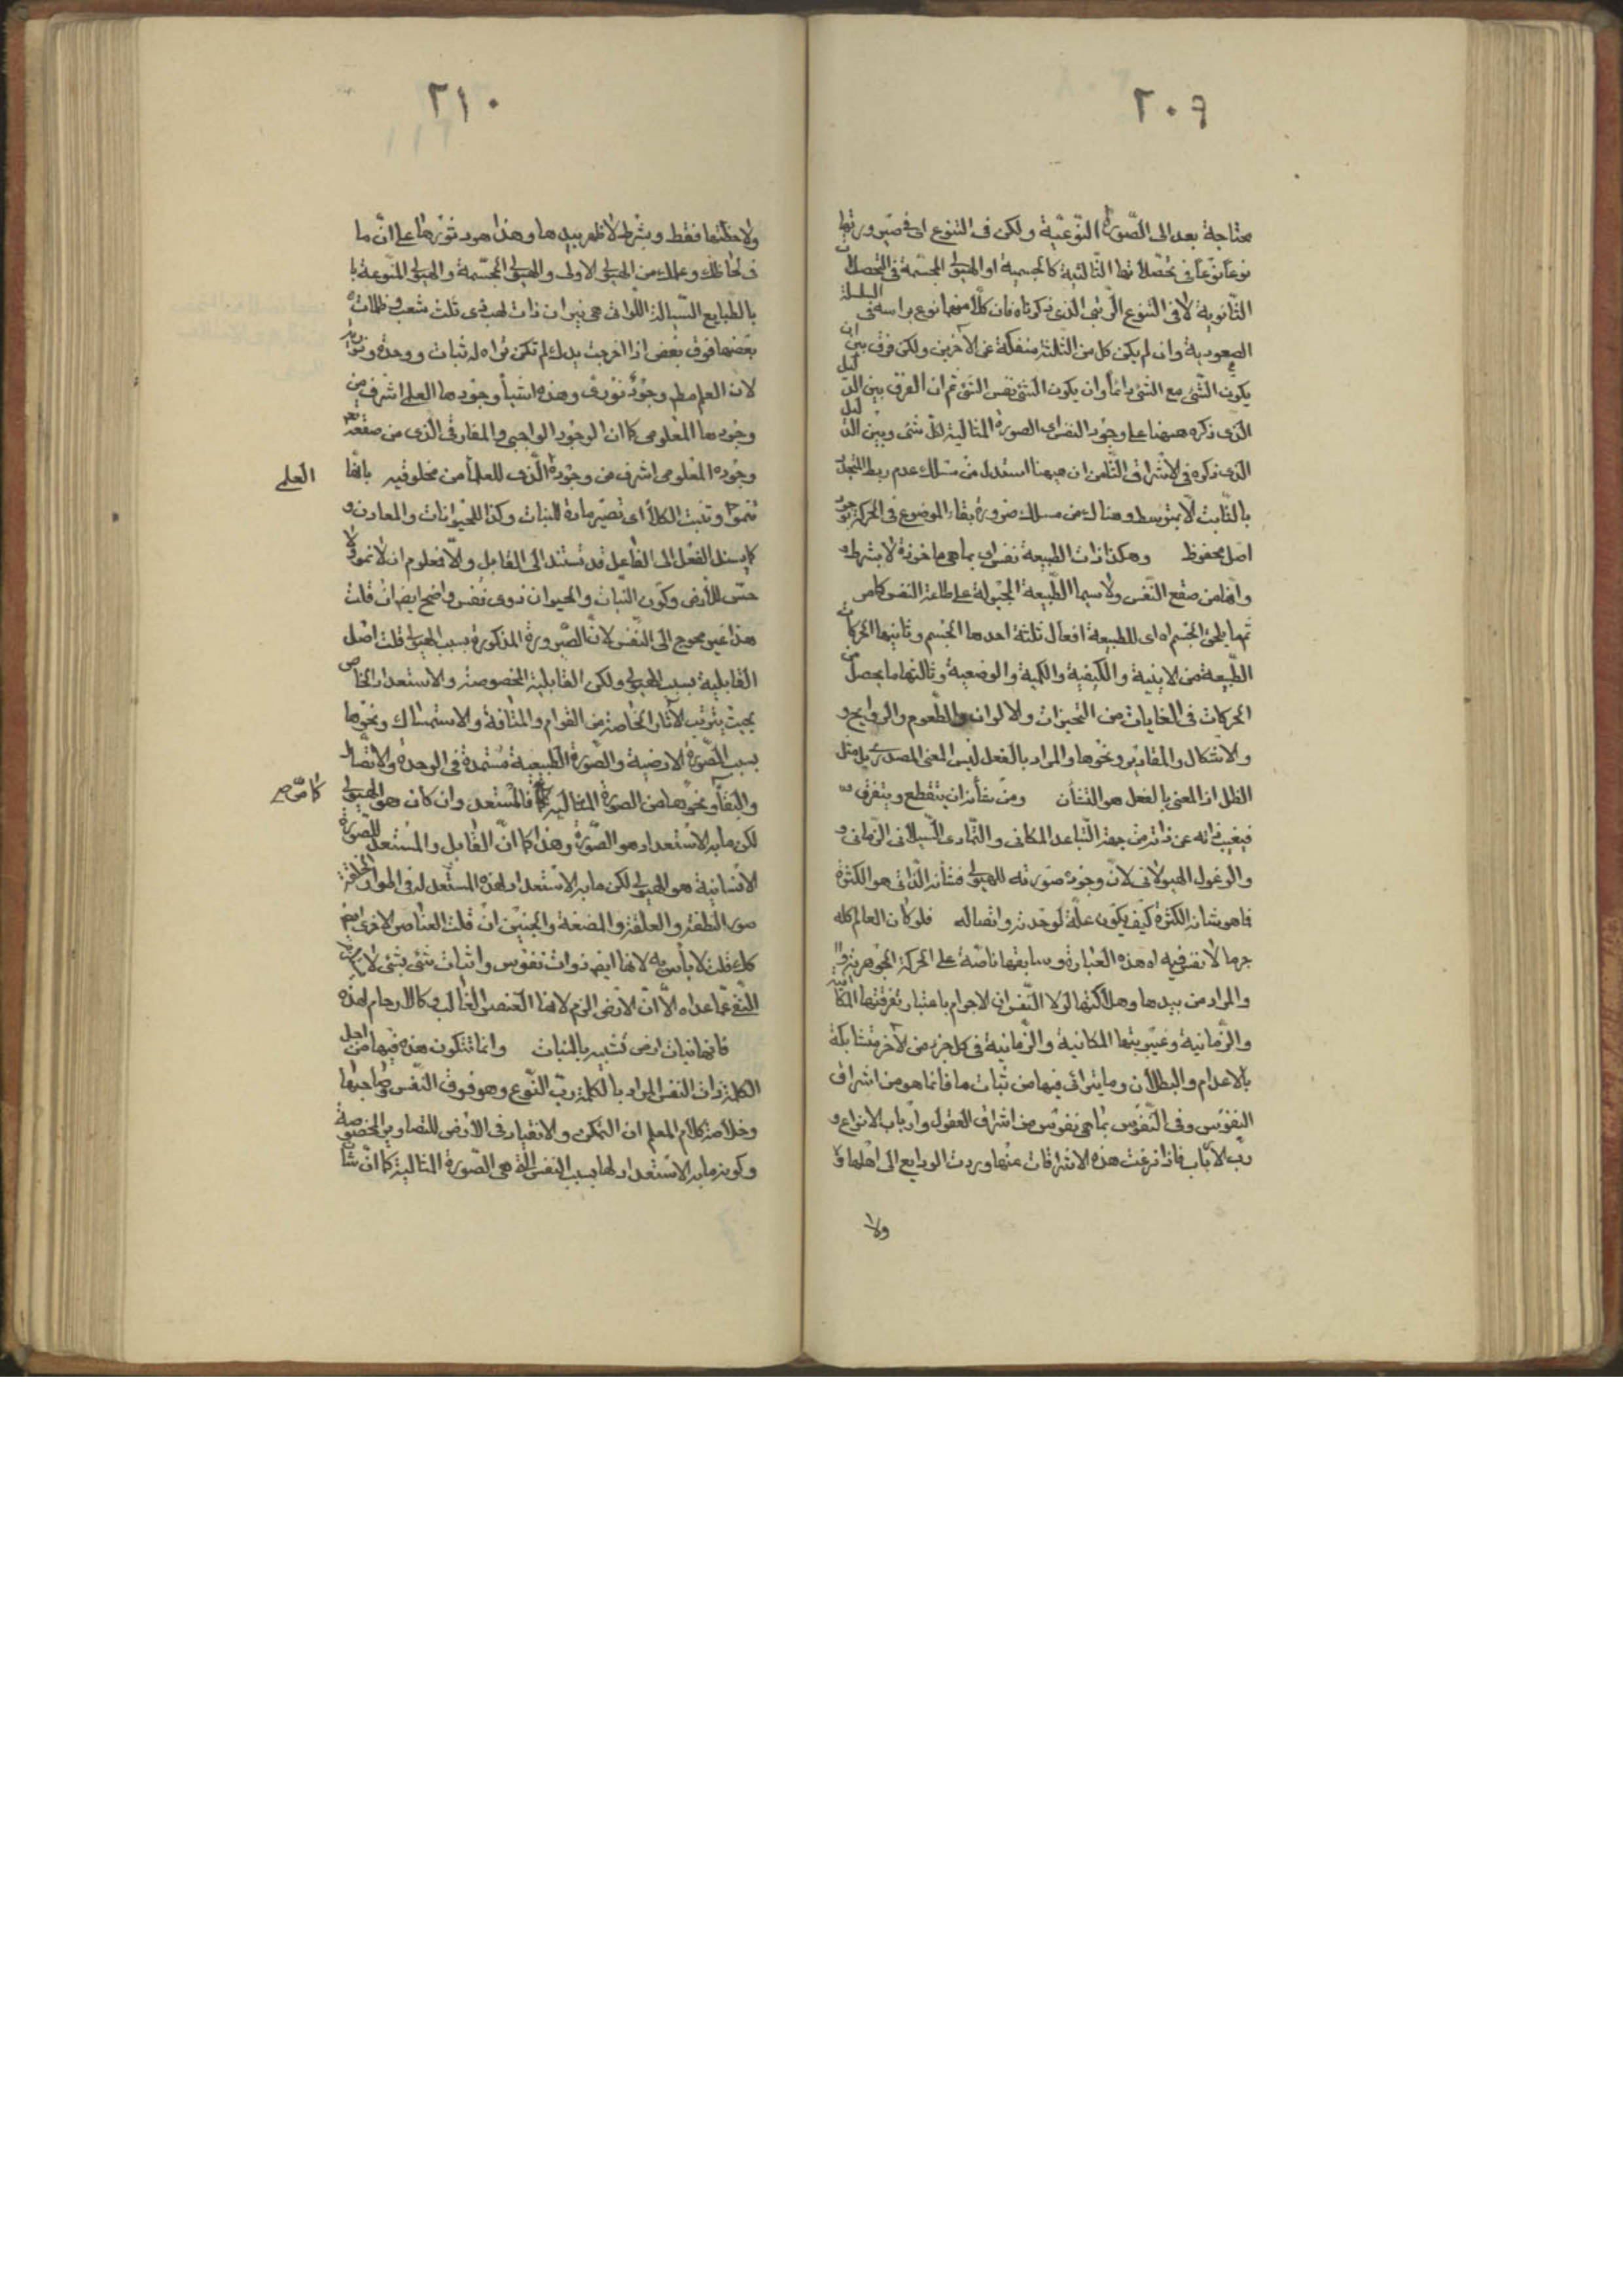 ٢٠٩
محتاجة بعد الى الصّورة النّوعيّة ولكن فى التنوع اى فى صيرورتها
نوعا نوعا فى تحصّلاتها الثّالثية كالجسمية او الهيولى المجسّمة فى التحصلات
الثّانوية لا فى التنوع الرّتبى الذى ذكرناه فان كلّا منهما نوع براسه فى السلسلة
الصعودية وان لم يكن كل من الثلثة منفكّة عن الآخرين ولكن فرق بين ان
يكون الشّئ مع الشّئ دائماً وان يكون الشئ نفس الشّئ ثم ان الفرق بين الدليل
الذى ذكره هيهنا على وجود النفس اى الصورة المثالية لكل شئ وبين الدليل
الذى ذكره فى الاشراق الثّامن ان هيهنا استدل من مسلك عدم ربط المتجدد
بالثّابت الّا بمتوسط وهناك من مسلك ضرورة بقاء الموضوع فى الحركة
اصل محفوظ وهكذا ذات الطبيعة نفس اى بما هى ماخوذة لا بشرط
وانها من صقع النّفس ولا سيما الطّبيعة المجبولة على طاعة النفس كما مر
ثمّ ما يلحق الجسم اه اى للطبيعة افعال ثلثة احدها الجسم وثانيها الحركات
الطّبيعة من الاينية والكيفية والكمية والوضعية وثالثها ما يحصل من
الحركات فى الغايات من التحيزات والالوان والطّعوم والروايح و
والاشكال والمقادير ونحوها والمراد بالفعل ليس المعنى المصدرى بل مثل
الظل اذ المعنى بالفعل هو الشان ومن شأنه ان يتقطع ويتفرق
فيغيب ذاته عن ذاته من جهة التّباعد المكانى والتّمادى السّيلانى الزّمانى و
والوغول الهيولانى لانّ وجود صورته للهيولى فشأنه الذّاتى هو الكثرة
فما هو شانه الكثرة كيف يكون علّة لوحدته واتصاله فلو كان العالم كله
جرما لا نفس فيه اه هذه العبارة وسابقها ناصّة على الحركة الجوهرية
والمراد من بيدها وهلاكتها لولا النّفس ان الاجرام باعتبار تفرقتها المكانية
والزّمانية وغيبوبتها المكانية والزّمانية فى كل جزء من الآخر متشابكة
بالاعدام والبطلان وما يترائى فيها من ثبات ما فانما هو من اشراق
النفوس وفى النّفوس بما هى نفوس من اشراق العقول وارباب الانواع و
ربّ الارباب فاذا نزعت هذه الاشراقات عنها وردت الودايع الى اهلها
ولا
٢١٠
ولاحظتها فقط وبشرط لا ظهر بيدها وهذا هو دثورها على انّ ما
فى لحاظك وعلمك من الهيولى الاولى والهيولى المجسّمة والهيولى المنّوعة با
بالطّبايع السّيالة اللّواتى هى نيران ذات لهب ذى ثلث شعب وظلمات
بعضها فوق بعض اذا اخرجت يدك لم تكن تراه له ثبات ووحدة ونورية
لان العلم مطلقا وجود نورى وهذه اشياء وجودها العلمى اشرف من
وجودها المعلومى كما ان الوجود الواجبى والمفارقى الذى من صقعه
وجوده المعلومى اشرف من وجوده الّذى للعلماء من مخلوقيه بانّها
تنمو وتنبت الكلأ اى تصير مادة للنبات وكذا للحيوانات والمعادن و
العلمى
كما يسند الفعل الى الفاعل قد تستند الى القابل والّا فمعلوم ان لا نمو ولا
حسّ للارض وكون النّبات والحيوان ذوى نفس واضح ايضا ان قلت
هذا غير محوج الى النّفس لانّ الصّيرورة المذكورة بسبب الهيولى قلت اصل
القابلية بسبب الهيولى ولكن القابلية المخصوصة والاستعداد الخاص
بحيث يترتب الآثار الخاصة من القوام والمتانة والاستمساك ونحوها
بسبب الصّورة الارضية والصّورة الطّبيعية مستمدة فى الوحدة والاتصال
والبقاء ونحوها من الصورة المثالية فالمستعد وان كان هو الهيولى
كما مرّ
لكن ما به الاستعداد هو الصّورة وهذا كما انّ القابل والمستعد للصورة
الانسانية هو الهيولى لكن ما به الاستعداد لهذه المستعد له فى المواد
صور النطفة والعلقة والمضغة والجنين ان قلت العناصر الاخرى ايضا
كك قلت لا بأس به لانها ايضا ذوات نفوس واثبات شئ بشئ لا
النّفى عمّا عداه الّا انّ الارض الزم لانها العنصر الغالب وكالارحام لهذه
فانها نبات ارض تشبيه بالنبات وانما تتكون هذه فيها من اجل
الكلمة ذات النفس المراد بالكلمة ربّ النّوع وهو فوق النّفس وصاحبها
وخلاصة كلام المعلم ان التمكن والانقياد فى الارض للتصاوير المخصوصة
وكونه ما به الاستعداد لها بسبب النفس الّتى هى الصّورة المثالية كما انّ